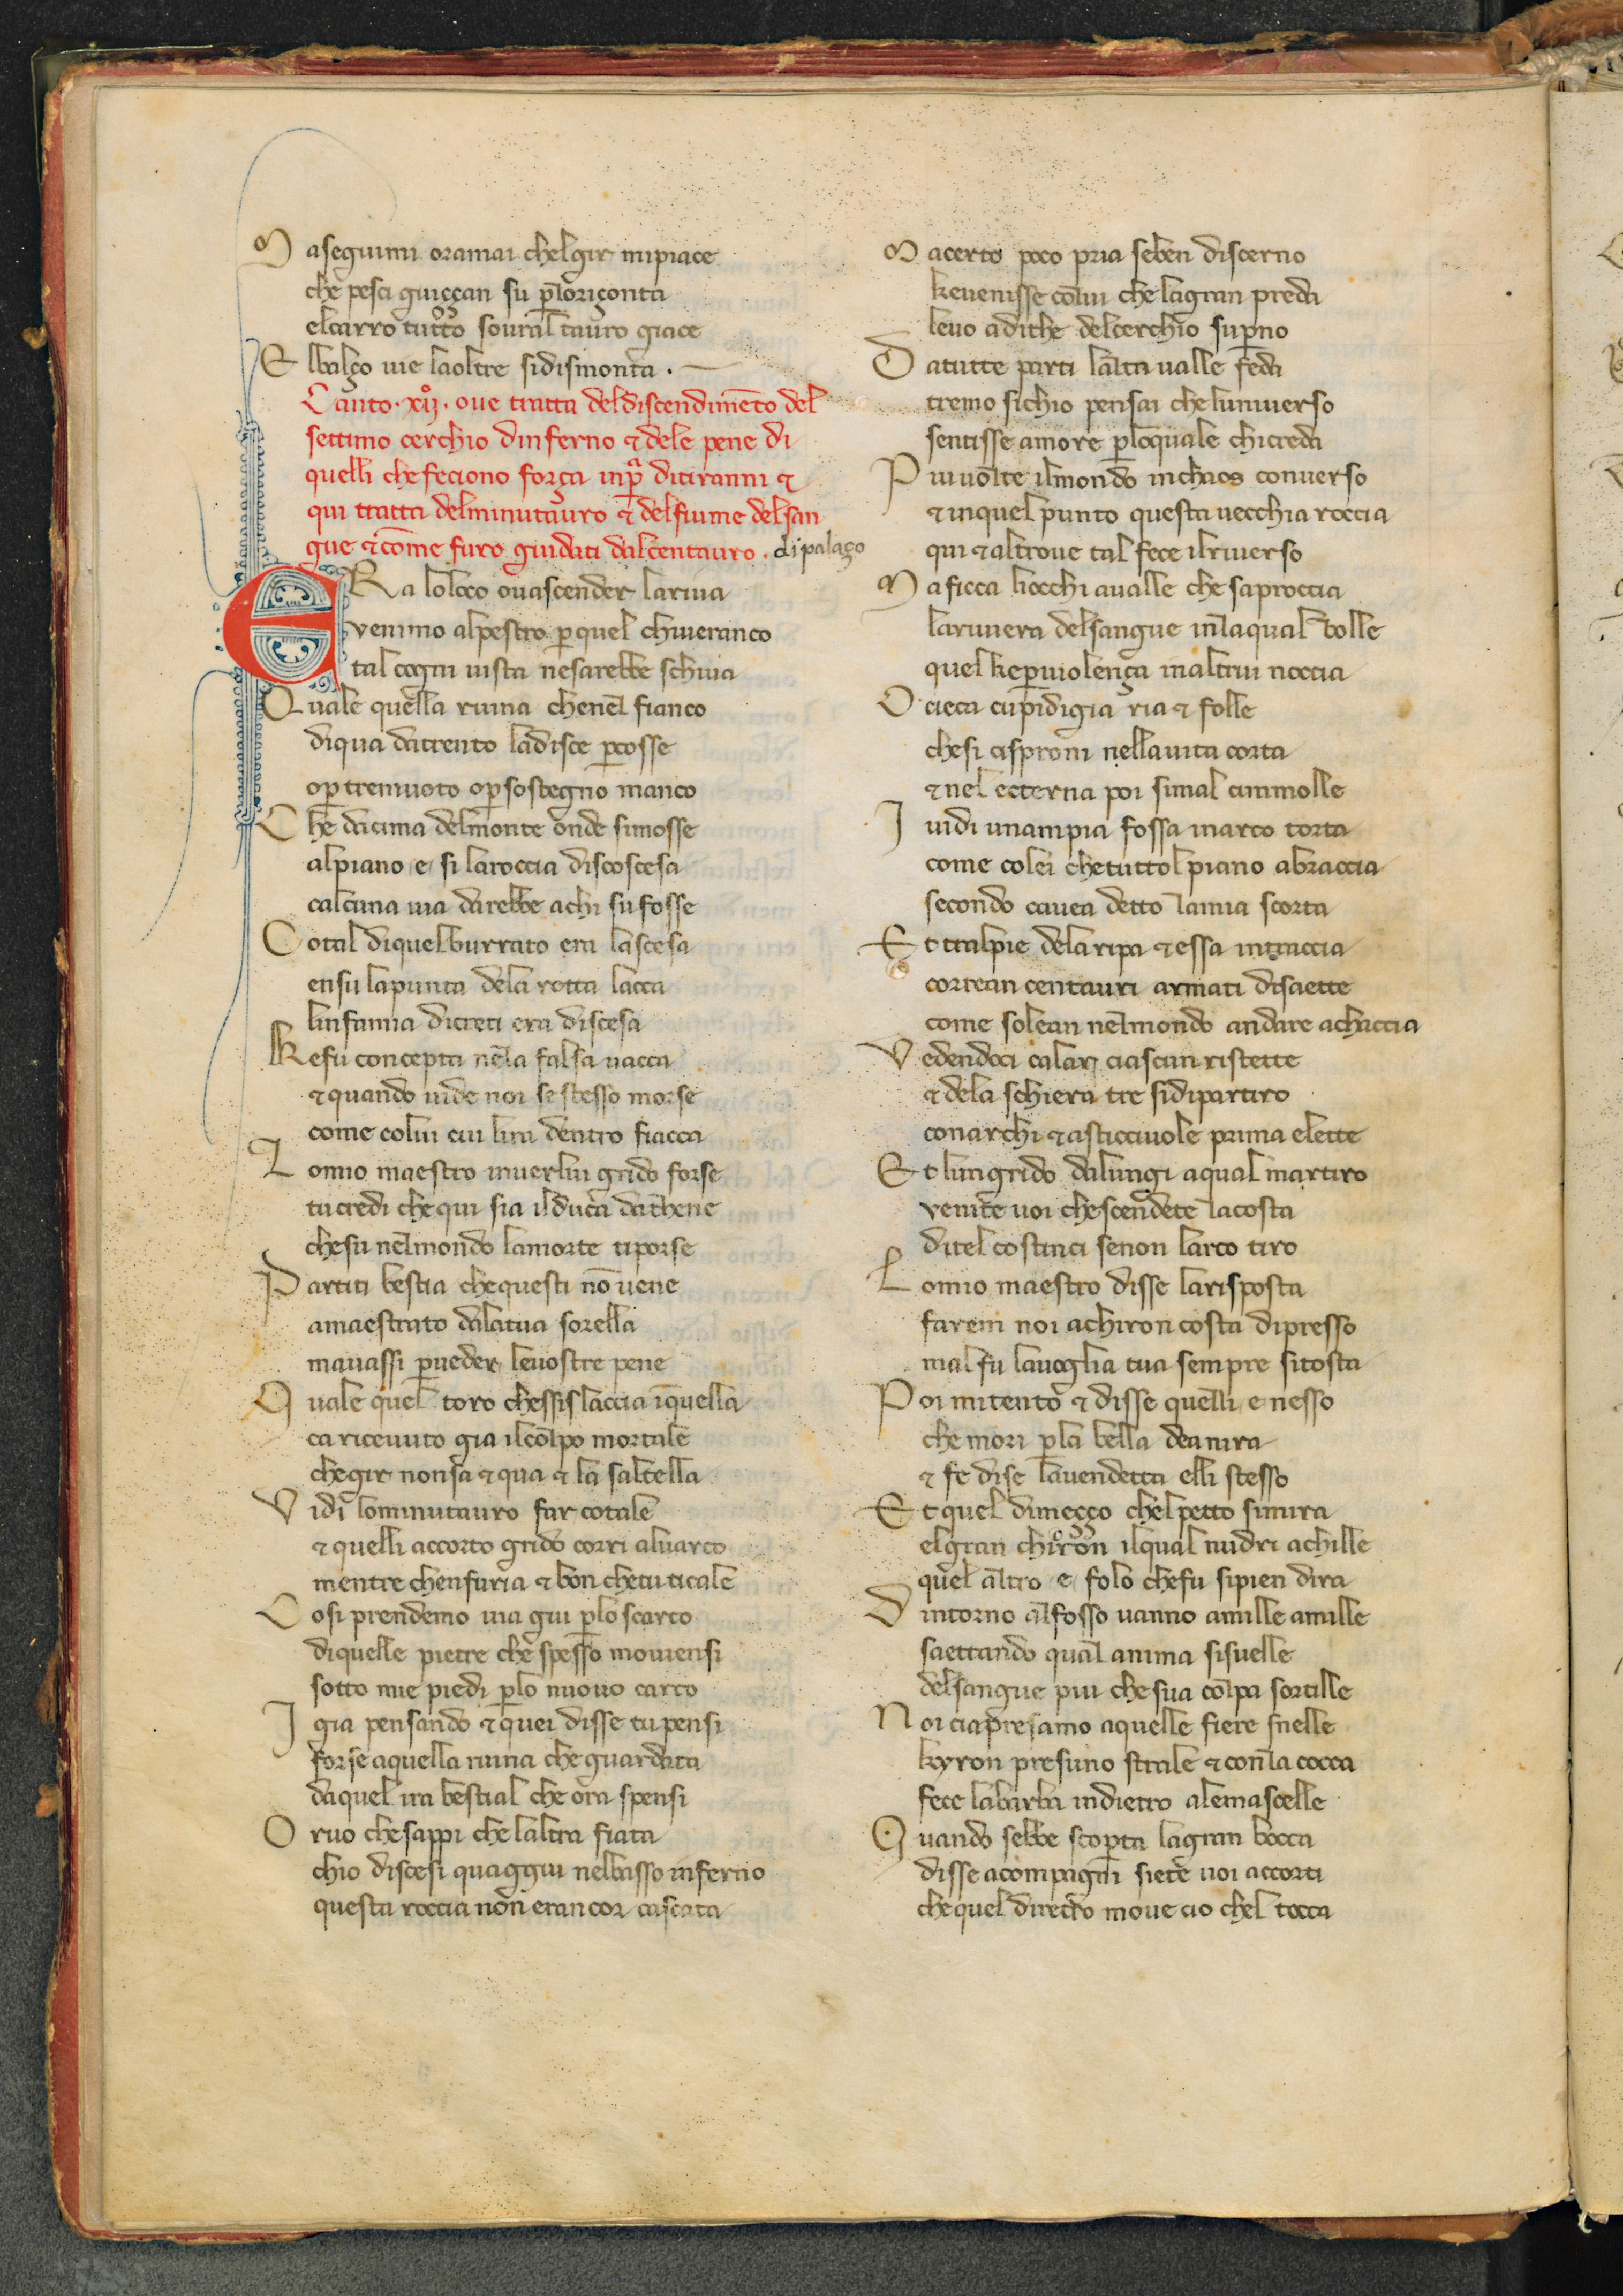 M aseguimi oramai chelgir mipiace
che pesci guiççan su p̲loriçonta
elcarro tutto soural tauro giace
E lbalço uie laoltre sidismonta .
Canto . xij . oue tratta deldiscendimēto del
settimo cerchio dinferno ⁊ dele pene di
quelli che feciono força inp̲ ditiranni ⁊
qui tratta delminutauro ⁊ delfiume delsan
gue ⁊ come furo guidati dalcentauro . di palaço
E Ra loloco ouascender lariua
venimo alpestro p̲ quel chiueranco
tal cogni uista nesarebbe schiua
Q uale quella ruina chenel fianco
diqua datrento ladisce p̲cosse
op̲ tremuoto op̲ sostegno manco
C he dacima delmonte onde simosse
alpiano e si laroccia discoscesa
calcuna uia darebbe achi sufosse
C otal diquelburrato era lascesa
ensu lapunta dela rotta lacca
linfamia dicreti era discesa
K efu concepta nela falsa uacca
⁊ quando uide noi se stesso morse
come colui cui lira dentro fiacca
L omio maestro inuerlui grido forse
tucredi che qui sia il duca dathene
chesu nelmondo lamorte tiporse
P artiti bestia chequesti nō uene
amaestrato dalatua sorella
mauassi p̲ueder leuostre pene
Q uale quel toro chessislaccia īquella
ca riceuuto gia ilcolpo mortale
chegir nonsa ⁊ qua ⁊ la saltella
V idi lominutauro far cotale
⁊ quelli accorto grido corri aluarco
mentre chenfuria ⁊ bon chetu ticale
C osi prendemo uia giu p̲lo scarco
diquelle pietre che spesso mouiensi
sotto mie piedi p̲lo nuouo carco
I gia pensando ⁊ quei disse tu pensi
forse aquella ruina che guardata
daquel ira bestial che ora spensi
O r uo che sappi che laltra fiata
chio discesi quaggiu nelbasso inferno
questa roccia non erancor cascata
M acerto poco pria seben discerno
keuenisse colui che lagran preda
leuo adithe delcerchio sup̲no
D atutte parti lalta ualle feda
tremo sichio pensai cheluniuerso
sentisse amore p̲loquale chicreda
P iu uolte ilmondo inchaos conuerso
⁊ inquel punto questa uecchia roccia
qui ⁊ altroue tal fece ilriuerso
M a ficca liocchi aualle che saproccia
lariuiera delsangue inlaqual bolle
quel kep̲uiolença inaltrui noccia
O cieca cupidigia ria ⁊ folle
chesi cisproni nellauita corta
⁊ nel ecterna poi simal cimmolle
I uidi unampia fossa inarco torta
come colei chetuttol piano abraccia
secondo cauea detto lamia scorta
E t tralpie delaripa ⁊ essa intraccia
correan centauri armati disaette
come solean nelmondo andare achaccia
V edendoci calar ciascun ristette
⁊ dela schiera tre sidipartiro
conarchi ⁊ asticciuole prima elette
E t lun grido dalungi aqual martiro
venite uoi chescendete lacosta
ditel costinci senon larco tiro
L omio maestro disse larisposta
farem noi achiron costa dipresso
mal fu lauoglia tua sempre sitosta
P oi mi tento ⁊ disse quelli e nesso
che mori p̲la bella deanira
⁊ fe dise lauendetta elli stesso
E t quel dimeçço chelpetto simira
elgran chiron ilqual nudri achille
quel altro e folo chefu sipien dira
D intorno alfosso uanno amille amille
saettando qual anima sisuelle
delsangue piu che sua colpa sortille
N oi ciapresamo aquelle fiere snelle
kyron presuno strale ⁊ conla cocca
fece labarba indietro alemascelle
Q uando sebbe scop̲ta lagran bocca
disse acompagni siete uoi accorti
chequel dirietro moue cio chel tocca